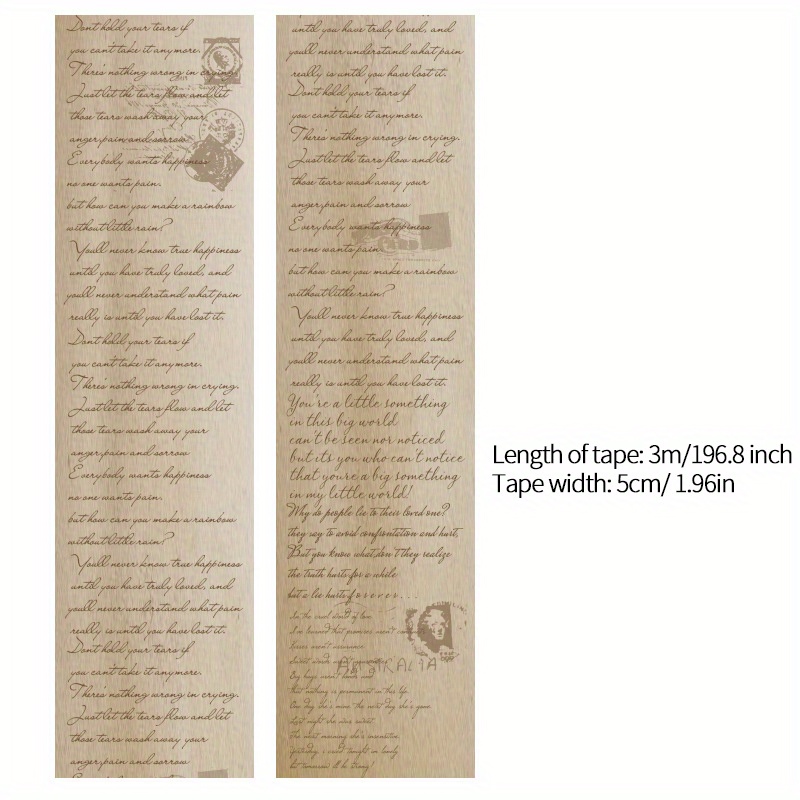 Don't hold your tears if
you can't take it anymore.
There's nothing wrong in crying.
Just let the tears flow and let
those tears wash away your
anger, pain and sorrow
Everybody wants happiness
no one wants pain.
but how can you make a rainbow
without little rain?
You'll never know true happiness
until you have truly loved, and
you'll never understand what pain
really is until you have lost it.
Don't hold your tears if
you can't take it anymore.
There's nothing wrong in crying.
Just let the tears flow and let
those tears wash away your
anger, pain and sorrow
Everybody wants happiness
no one wants pain.
but how can you make a rainbow
without little rain?
You'll never know true happiness
until you have truly loved, and
you'll never understand what pain
really is until you have lost it.
Don't hold your tears if
you can't take it anymore.
There's nothing wrong in crying.
Just let the tears flow and let
those tears wash away your
anger, pain and sorrow
until you have truly loved, and
you'll never understand what pain
really is until you have lost it.
Don't hold your tears if
you can't take it anymore.
There's nothing wrong in crying.
Just let the tears flow and let
those tears wash away your
anger, pain and sorrow
Everybody wants happiness
no one wants pain.
but how can you make a rainbow
without little rain?
You'll never know true happiness
until you have truly loved, and
you'll never understand what pain
really is until you have lost it.
You're a little something
in this big world
can't be seen nor noticed
but its you who can't notice
that you're a big something
in my little world!
Why do people lie to their loved one?
they say to avoid confrontation and hurt,
But you know what, don't they realize
the truth hurts for a while
but a lie hurts forever...
In the cruel world of love
I've learned that promises aren't
Kisses aren't
Sweet words
Big hugs aren't
that nothing is permanent in this life.
One day she's mine the next day she's gone
Last night she was sweet
the next morning she's insensitive.
Yesterday, i used
but tomorrow ill be strong!
AUSTRALIA
Length of tape: 3m/196.8 inch
Tape width: 5cm/ 1.96in